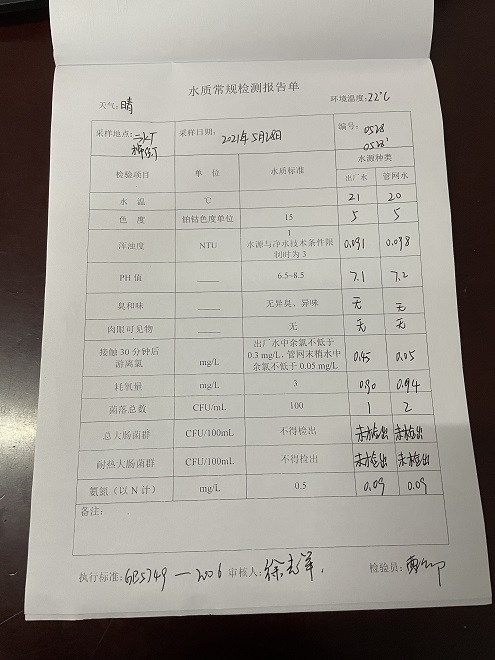 水质常规检测报告单
天气：晴 环境温度：22℃
采样地点：二水厂 采样日期： 2021年5月28日 编号：0528
0528'
检验项目 单 位 水质标准 水源种类
出厂水 管网水
水 温 ℃ 21 20
色 度 铂钴色度单位 15 5 5
浑浊度 NTU 1 0.091 0.098
水源与净水技术条件限
制时为 3
PH 值 —— 6.5~8.5 7.1 7.2
臭和味 —— 无异臭、异味 无 无
肉眼可见物 —— 无 无 无
接触 30 分钟后
游离氯 mg/L 出厂水中余氯不低于
0.3 mg/L，管网末梢水中
余氯不低于 0.05 mg/L 0.45 0.05
耗氧量 mg/L 3 0.90 0.94
菌落总数 CFU/mL 100 1 2
总大肠菌群 CFU/100mL 不得检出 未检出 未检出
耐热大肠菌群 CFU/100mL 不得检出 未检出 未检出
氨氮（以 N 计） mg/L 0.5 0.09 0.09
备注：
执行标准：GB5749—2006 审核人：徐志军 检验员：